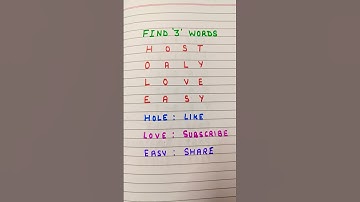 FIND '3' WORDS
H O S T
O A L Y
L O V E
E A S Y
HOLE : LIKE
LOVE : SUBSCRIBE
EASY : SHARE